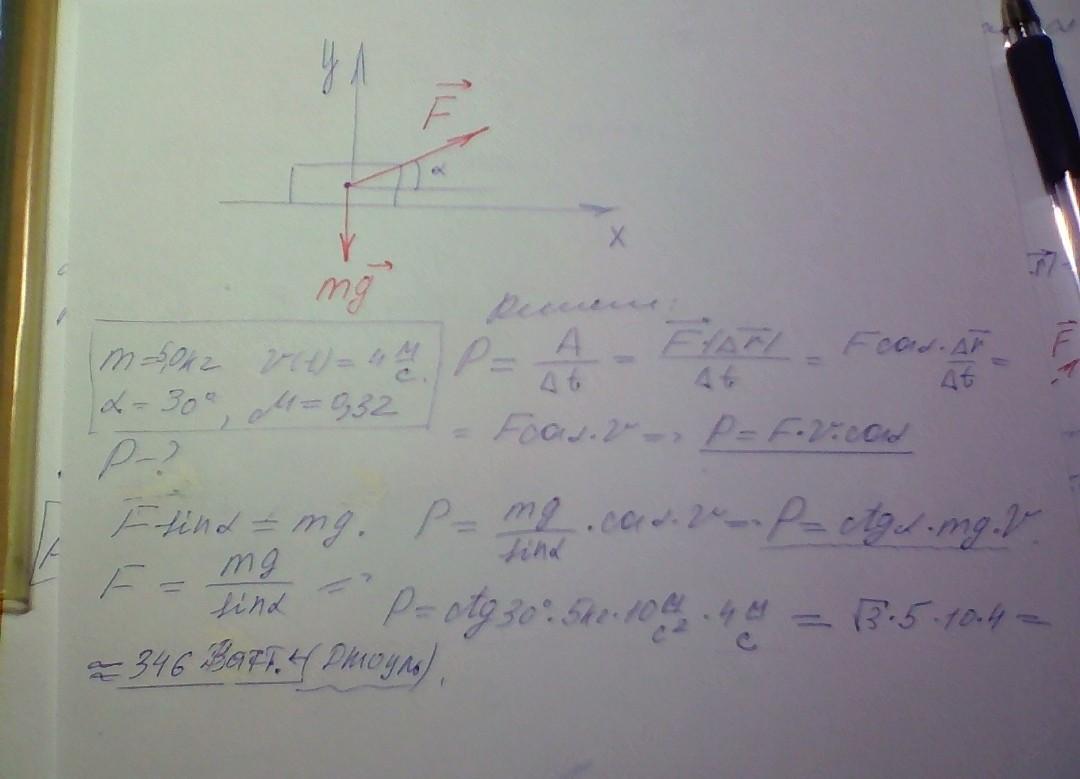 y
F⃗
α
x
mg⃗
Решение:
m=5,0кг v(t)=4 м/с.
α=30°, μ=0,32
P-?
P = A/Δt = F⃗·|Δr⃗|/Δt = Fcosα·Δr⃗/Δt =
= Fcosα·v => P=F·v·cosα
F·sinα = mg. P = mg/sinα ·cosα·v => P=ctgα·mg·v.
F = mg/sinα =>
P=ctg30°·5кг·10 м/с²·4 м/с = √3·5·10·4 =
≈ 346 Ватт. (Джоуль).